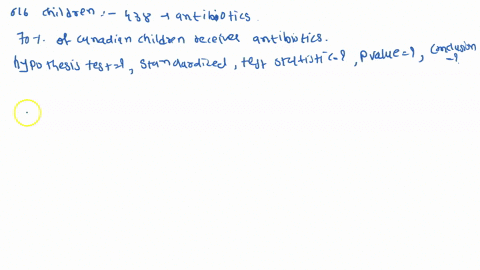 616 children :- 438 → antibiotics.
70% of canadian children receives antibiotics.
hypothesis test=?, standardized, test statistic=?, p value=?, conclusion =?